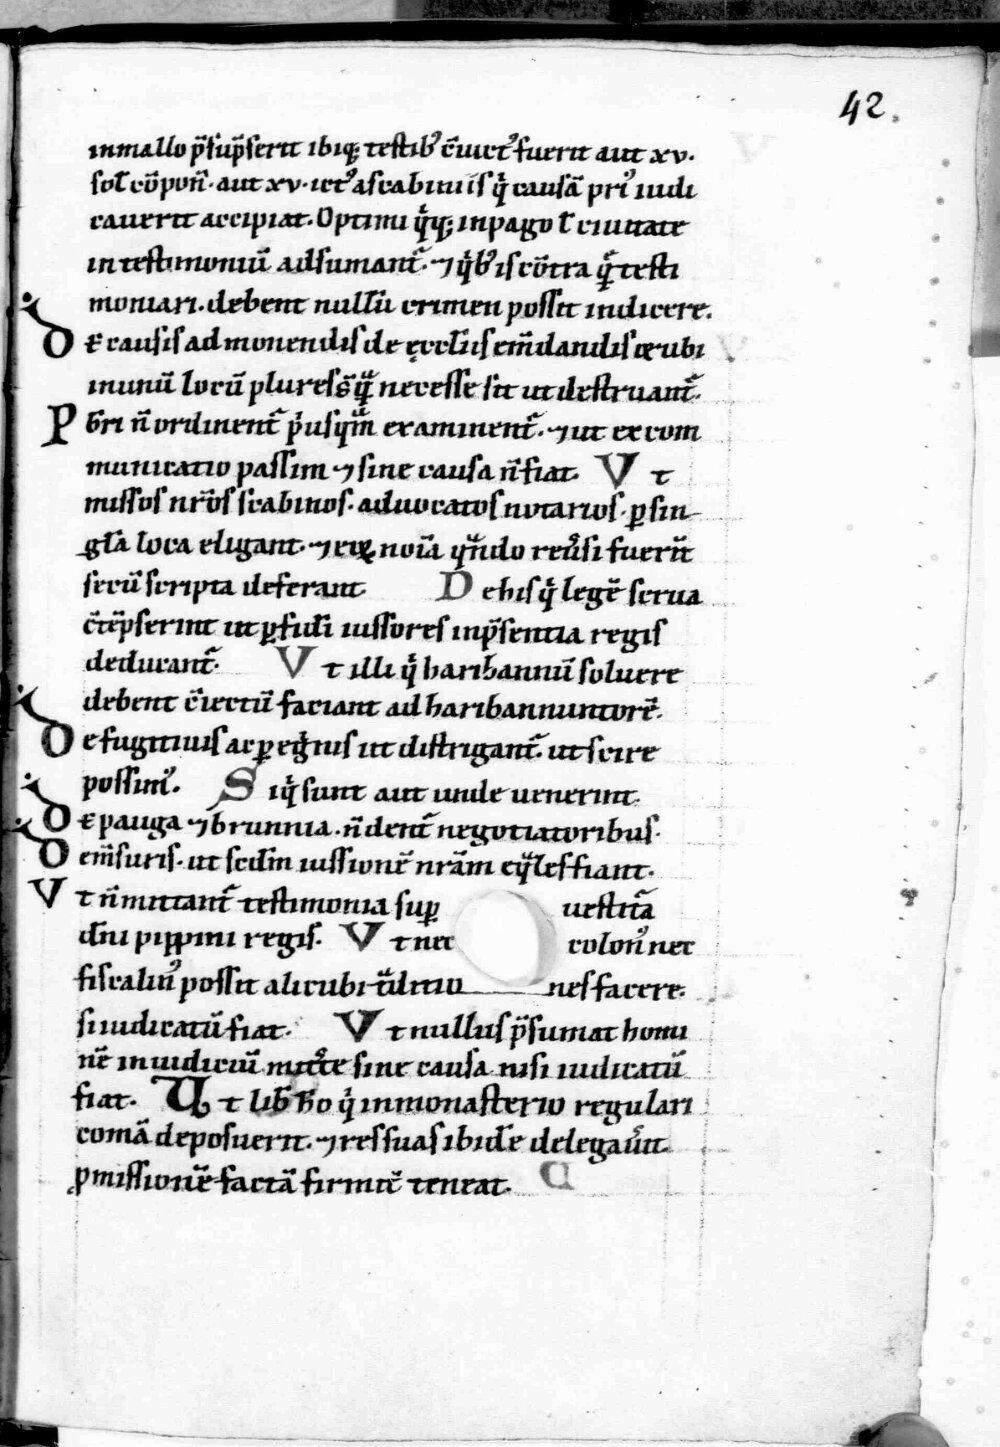 42.
inmallo p̄sūp̄serit ibiq; testib᷒ c̄uict᷒ fuerit aut xv.
sol̄ cōpon̄. aut xv. ict᷒ ascabiniis q̇ causā pri᷒ iudi
cauerit accipiat. Optimi q̇q; inpago l̄ ciuitate
in testimoniū adsumant̄. ⁊ q̇b᷒ is cōtra q̄ testi
moniari. debent nullū crimen possit indicere.
De causis ad monendis de ęccl̄iis em̄dandis & ubi
inunū locū plures s̄ q̄ necesse sit ut destruant̄.
Pb̄ri n̄ ordinent̄ ṗusq̄m examinent̄. ⁊ ut excom
municatio passim ⁊ sine causa n̄ fiat. Vt
missos nr̄os scabinos. aduocatos notarios. ꝑ sin
gl̄a loca eligant. ⁊ eoꝝ noīa qn̄do reūsi fuerīt
secū scripta deferant. De his q̇ legē serua
c̄tēpserint ut ꝑ fidī iussores inp̄sentia regis
deducant̄. Vt illi q̇ haribannū soluere
debent c̄iectū faciant ad haribannitorē.
De fugitiuis ac ꝑegⁱnis ut distrigant̄. ut scire
possim᷒. Siq̇ sunt aut unde uenerint.
De pauga ⁊ brunnia. n̄ dent̄ negotiatoribus.
De m̄suris. ut scd̄m iussionē nr̄am eq̄les fiant.
Vt n̄ mittant̄ testimonia suꝑ uestitā
dn̄i pippini regis. Vt nec colon᷒ nec
fiscalin᷒ possit alicubi t̄ditio nes facere.
si iudicatū fiat. Vt nullus p̄sumat homi
nē in iudiciū mitt᷒e sine causa nisi iudicatū
fiat. Ut lib̄ h̄o q̇ inmonasterio regulari
comā deposuerit. ⁊ res suas ibidē delegaūit.
ꝓmissionē factā firmit̄ teneat. C